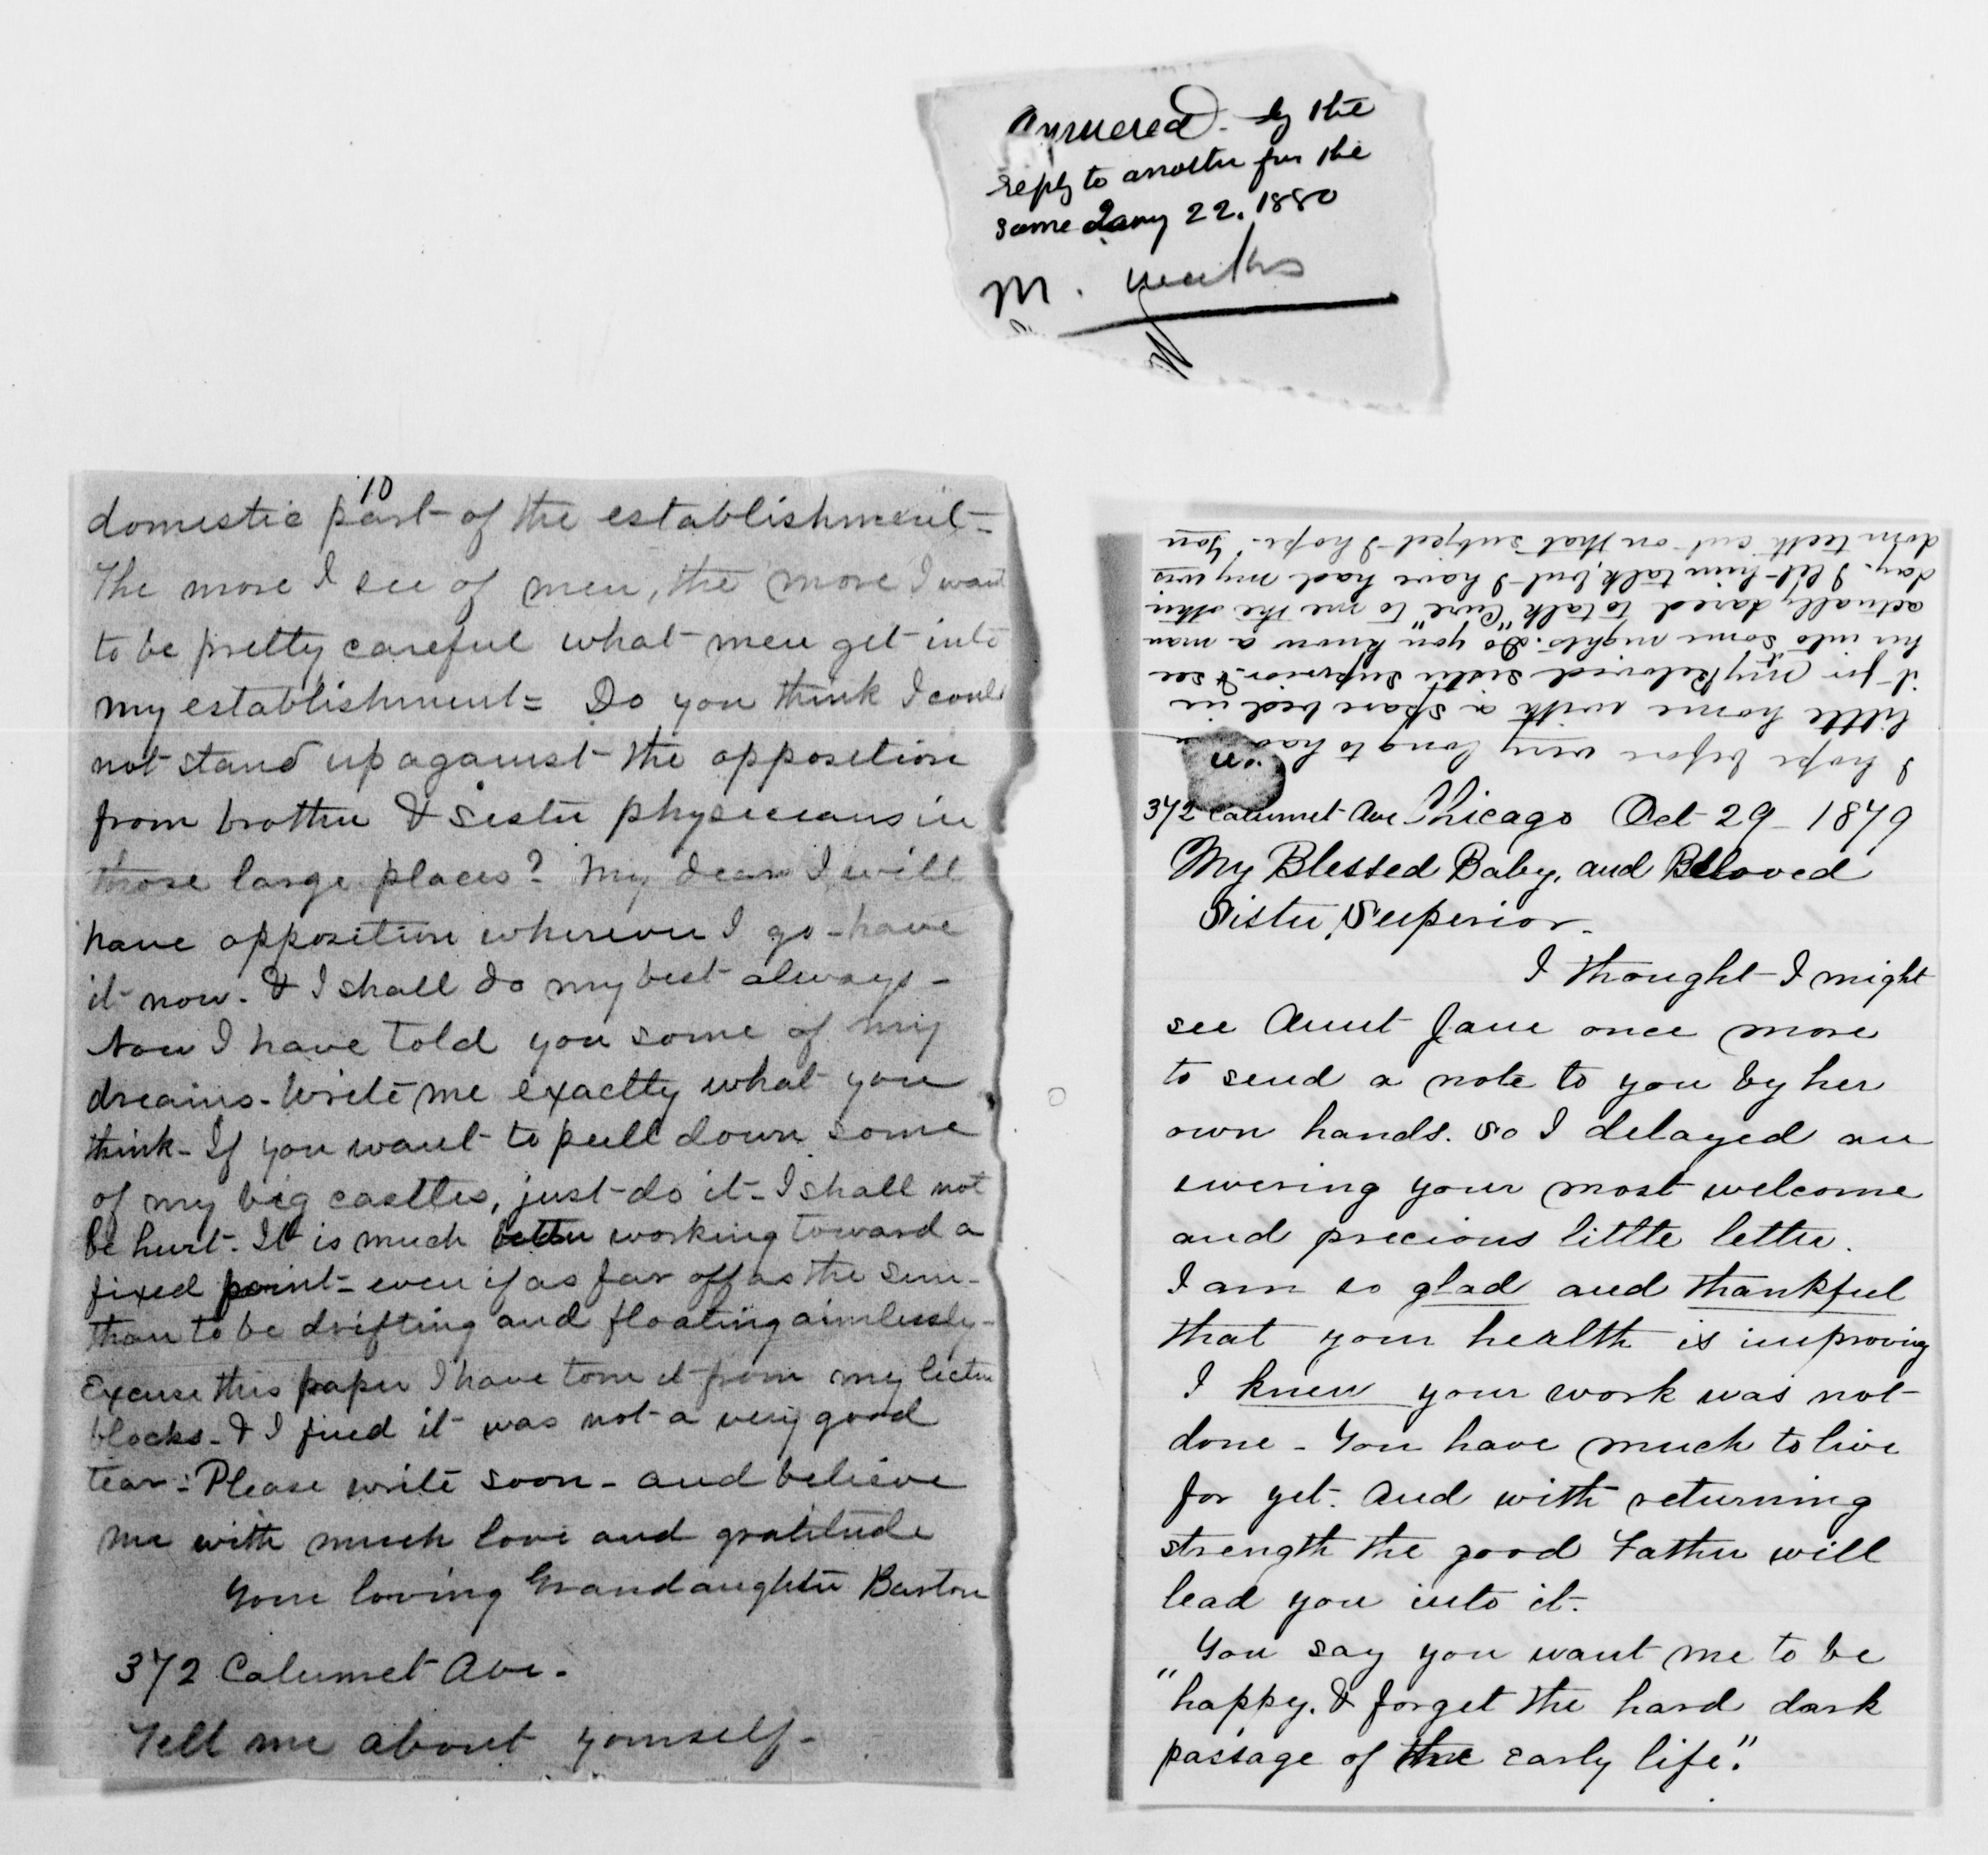 Answered - by the
reply to another fur the
same Jany 22. 1880
M.
10
domestic part of the establishment -
The more I see of men, the more I want
to be pretty careful what men get into
my establishment = Do you think I could
not stand up against the opposition
from brother & sister physicians in
those large places? My dear I will
have opposition wherever I go - have
it now. & I shall do my best always -
Now I have told you some of my
dreams - Write me exactly what you
think - If you want to pull down some
of my big castles, just do it - I shall not
be hurt. It is much better working toward a
fixed point - even if as far off as the sun -
than to be drifting and floating aimlessly -
Excuse this paper I have torn it from my lectur
blocks - & I find it was not a very good
tear : Please write soon - and believe
me with much love and gratitude
Your loving Grandaughter Barton
372 Calumet Ave -
Tell me about yourself -
I hope before very long to have
little home with a spare bed in
it for my Beloved Sister Superior & see
her into some nights. Do you know a man
actually dared to talk "Cure" to me the other
day. I let him talk, but I have had my wis
dom teeth cut on that subject I hope. You
372 Calumet Ave Chicago Oct 29 - 1879
My Blessed Baby, and Beloved
Sister Superior -
I thought I might
see Aunt Jane once more
to send a note to you by her
own hands. So I delayed an
swering your most welcome
and precious little letter.
I am so glad and thankful
that your health is improving
I knew your work was not
done - You have much to live
for yet. And with returning
strength the good Father will
lead you into it -
You say you want me to be
"happy. & forget the hard dark
passage of the early life".